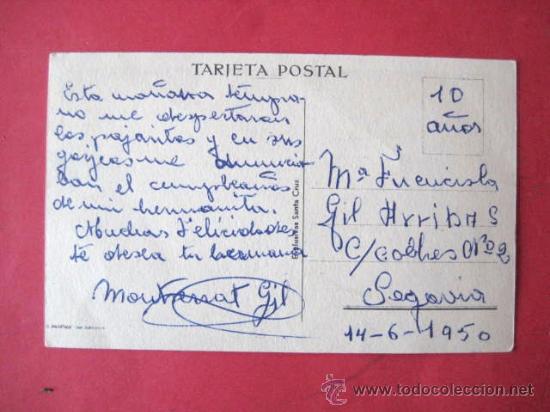 TARJETA POSTAL
Esta mañana tempra
no me despertaron
los pajaritos y en sus
gorjeos me anuncia
ban el cumpleaños
de mi hermanita.
Muchas Felicidades
te desea tu hermana
Montserrat Gil
10
años
Mª Fuencisla
Gil Arribas
C/ Nº 22
Segovia
14-6-1950
Santa Cruz
www.todocoleccion.net